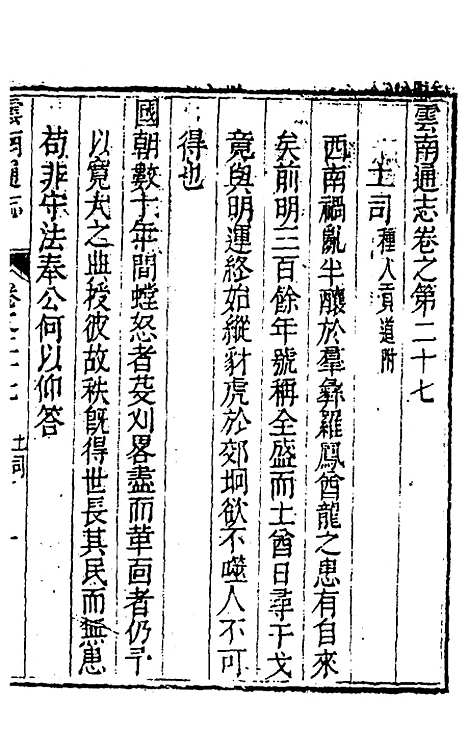 雲南通志卷之第二十七
土司種人貢道附
西南禍亂半釀於羣彝羅鳳酋龍之患有自來
矣前明三百餘年號稱全盛而土酋日尋干戈
竟與明運終始縱豺虎於郊坰欲不噬人不可
得也
國朝數十年間螳怒者芟刈畧盡而革面者仍予
以寬大之典授彼故秩旣得世長其民而無患
苟非守法奉公何以仰答
雲南通志 卷之二十七 土司 一